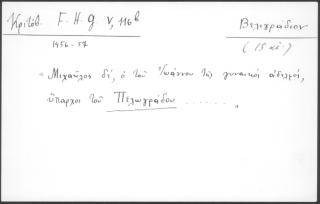 Κριτόβ. F. H. G V, 116b Βελιγράδιον
1456-57 (15 αἰ.)
"Μιχαῆλος δέ, ὁ τοῦ Ἰωάννου τῆς γυναικὸς ἀδελφός,
ὕπαρχος τοῦ Πελογράδου ......."